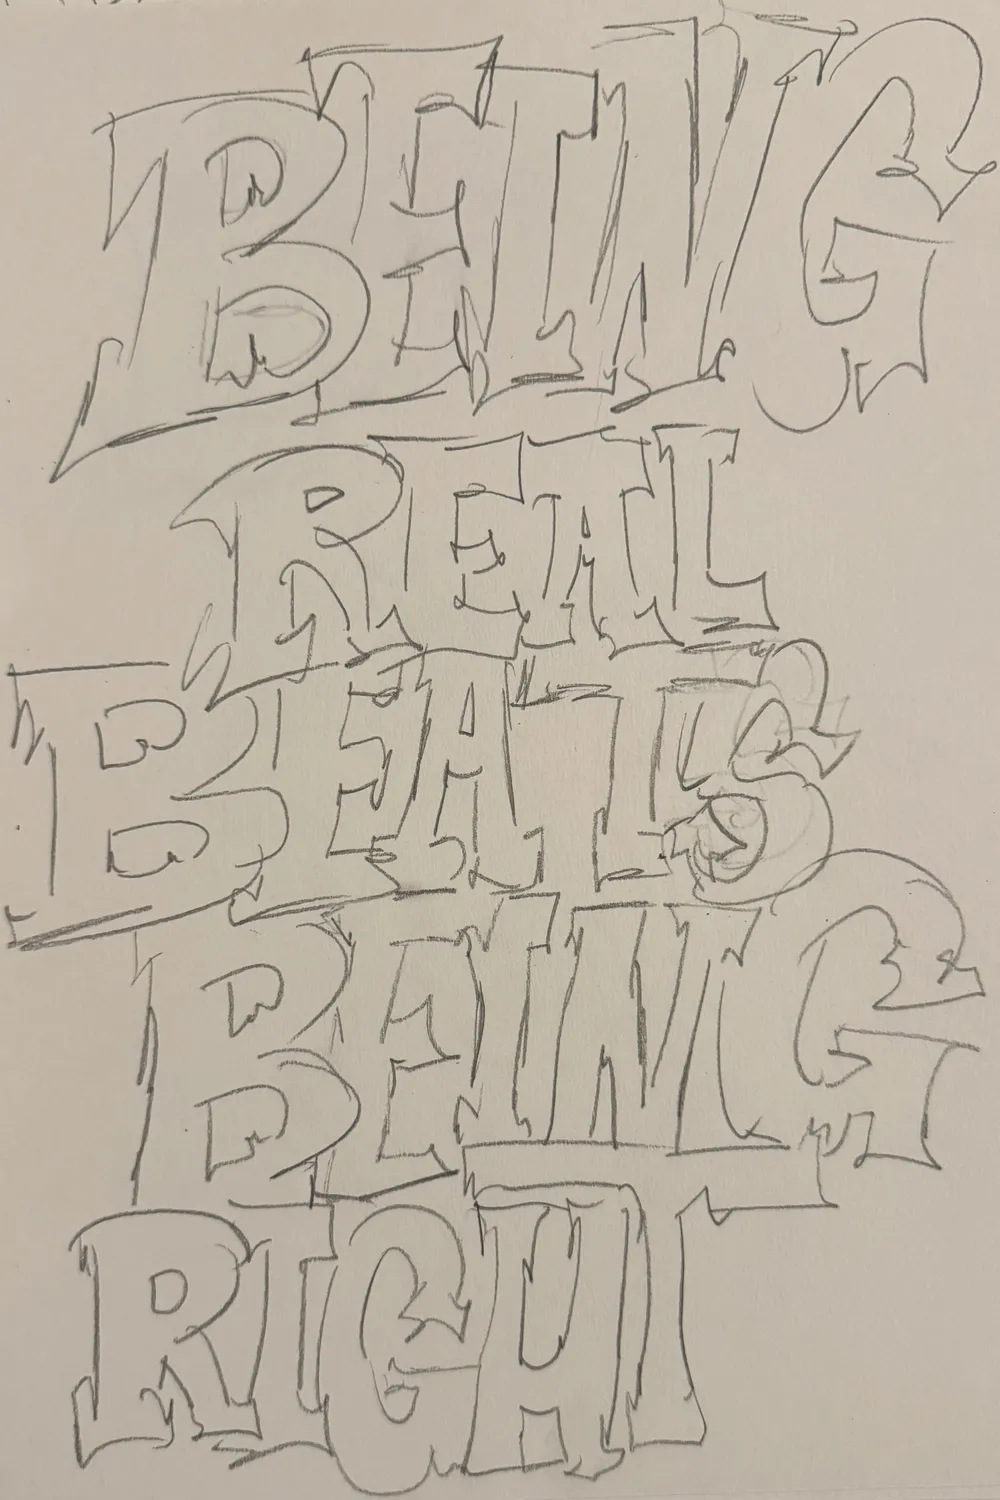 BEING
REAL
BEATS
BEING
RIGHT